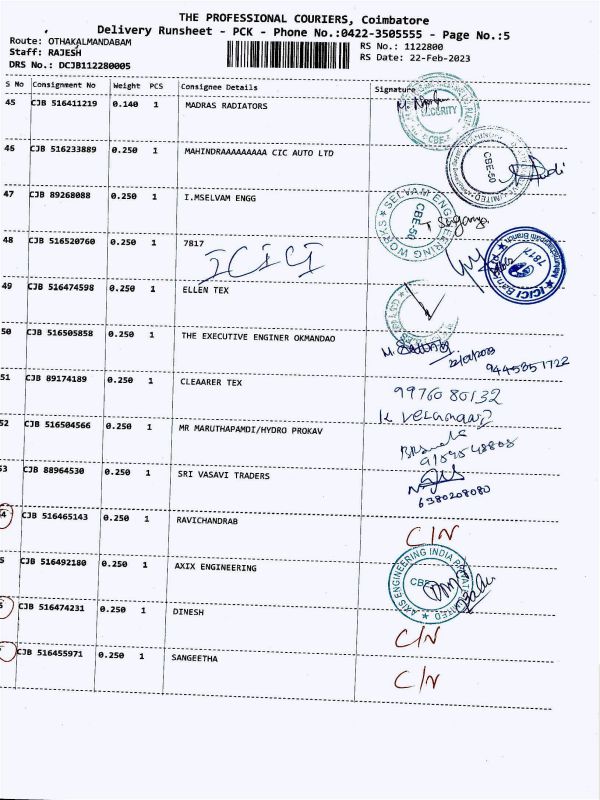 THE PROFESSIONAL COURIERS, Coimbatore
Delivery Runsheet - PCK - Phone No.:0422-3505555 - Page No.:5
Route: OTHAKALMANDABAM
RS No.: 1122800
Staff: RAJESH
RS Date: 22-Feb-2023
DRS No.: DCJB112280005
S No Consignment No Weight PCS Consignee Details Signature
45 CJB 516411219 0.140 1 MADRAS RADIATORS
SECURITY
CBE-
46 CJB 516233889 0.250 1 MAHINDRAAAAAAAAA CIC AUTO LTD
CBE-50
47 CJB 89268088 0.250 1 I.MSELVAM ENGG
SELVAM ENGINEERING WORKS
CBE-50
T Suganya
48 CJB 516520760 0.250 1 7817
ICICI
ICICI Bank
7817
49 CJB 516474598 0.250 1 ELLEN TEX
50 CJB 516505858 0.250 1 THE EXECUTIVE ENGINER OKMANDAO
9445857722
51 CJB 89174189 0.250 1 CLEAARER TEX
9976080132
52 CJB 516504566 0.250 1 MR MARUTHAPAMDI/HYDRO PROKAV
53 CJB 88964530 0.250 1 SRI VASAVI TRADERS
6380208080
4 CJB 516465143 0.250 1 RAVICHANDRAB
C/N
5 CJB 516492180 0.250 1 AXIX ENGINEERING
AXIS ENGINEERING INDIA PRIVATE LIMITED
CBE
6 CJB 516474231 0.250 1 DINESH
C/N
CJB 516455971 0.250 1 SANGEETHA
C/N